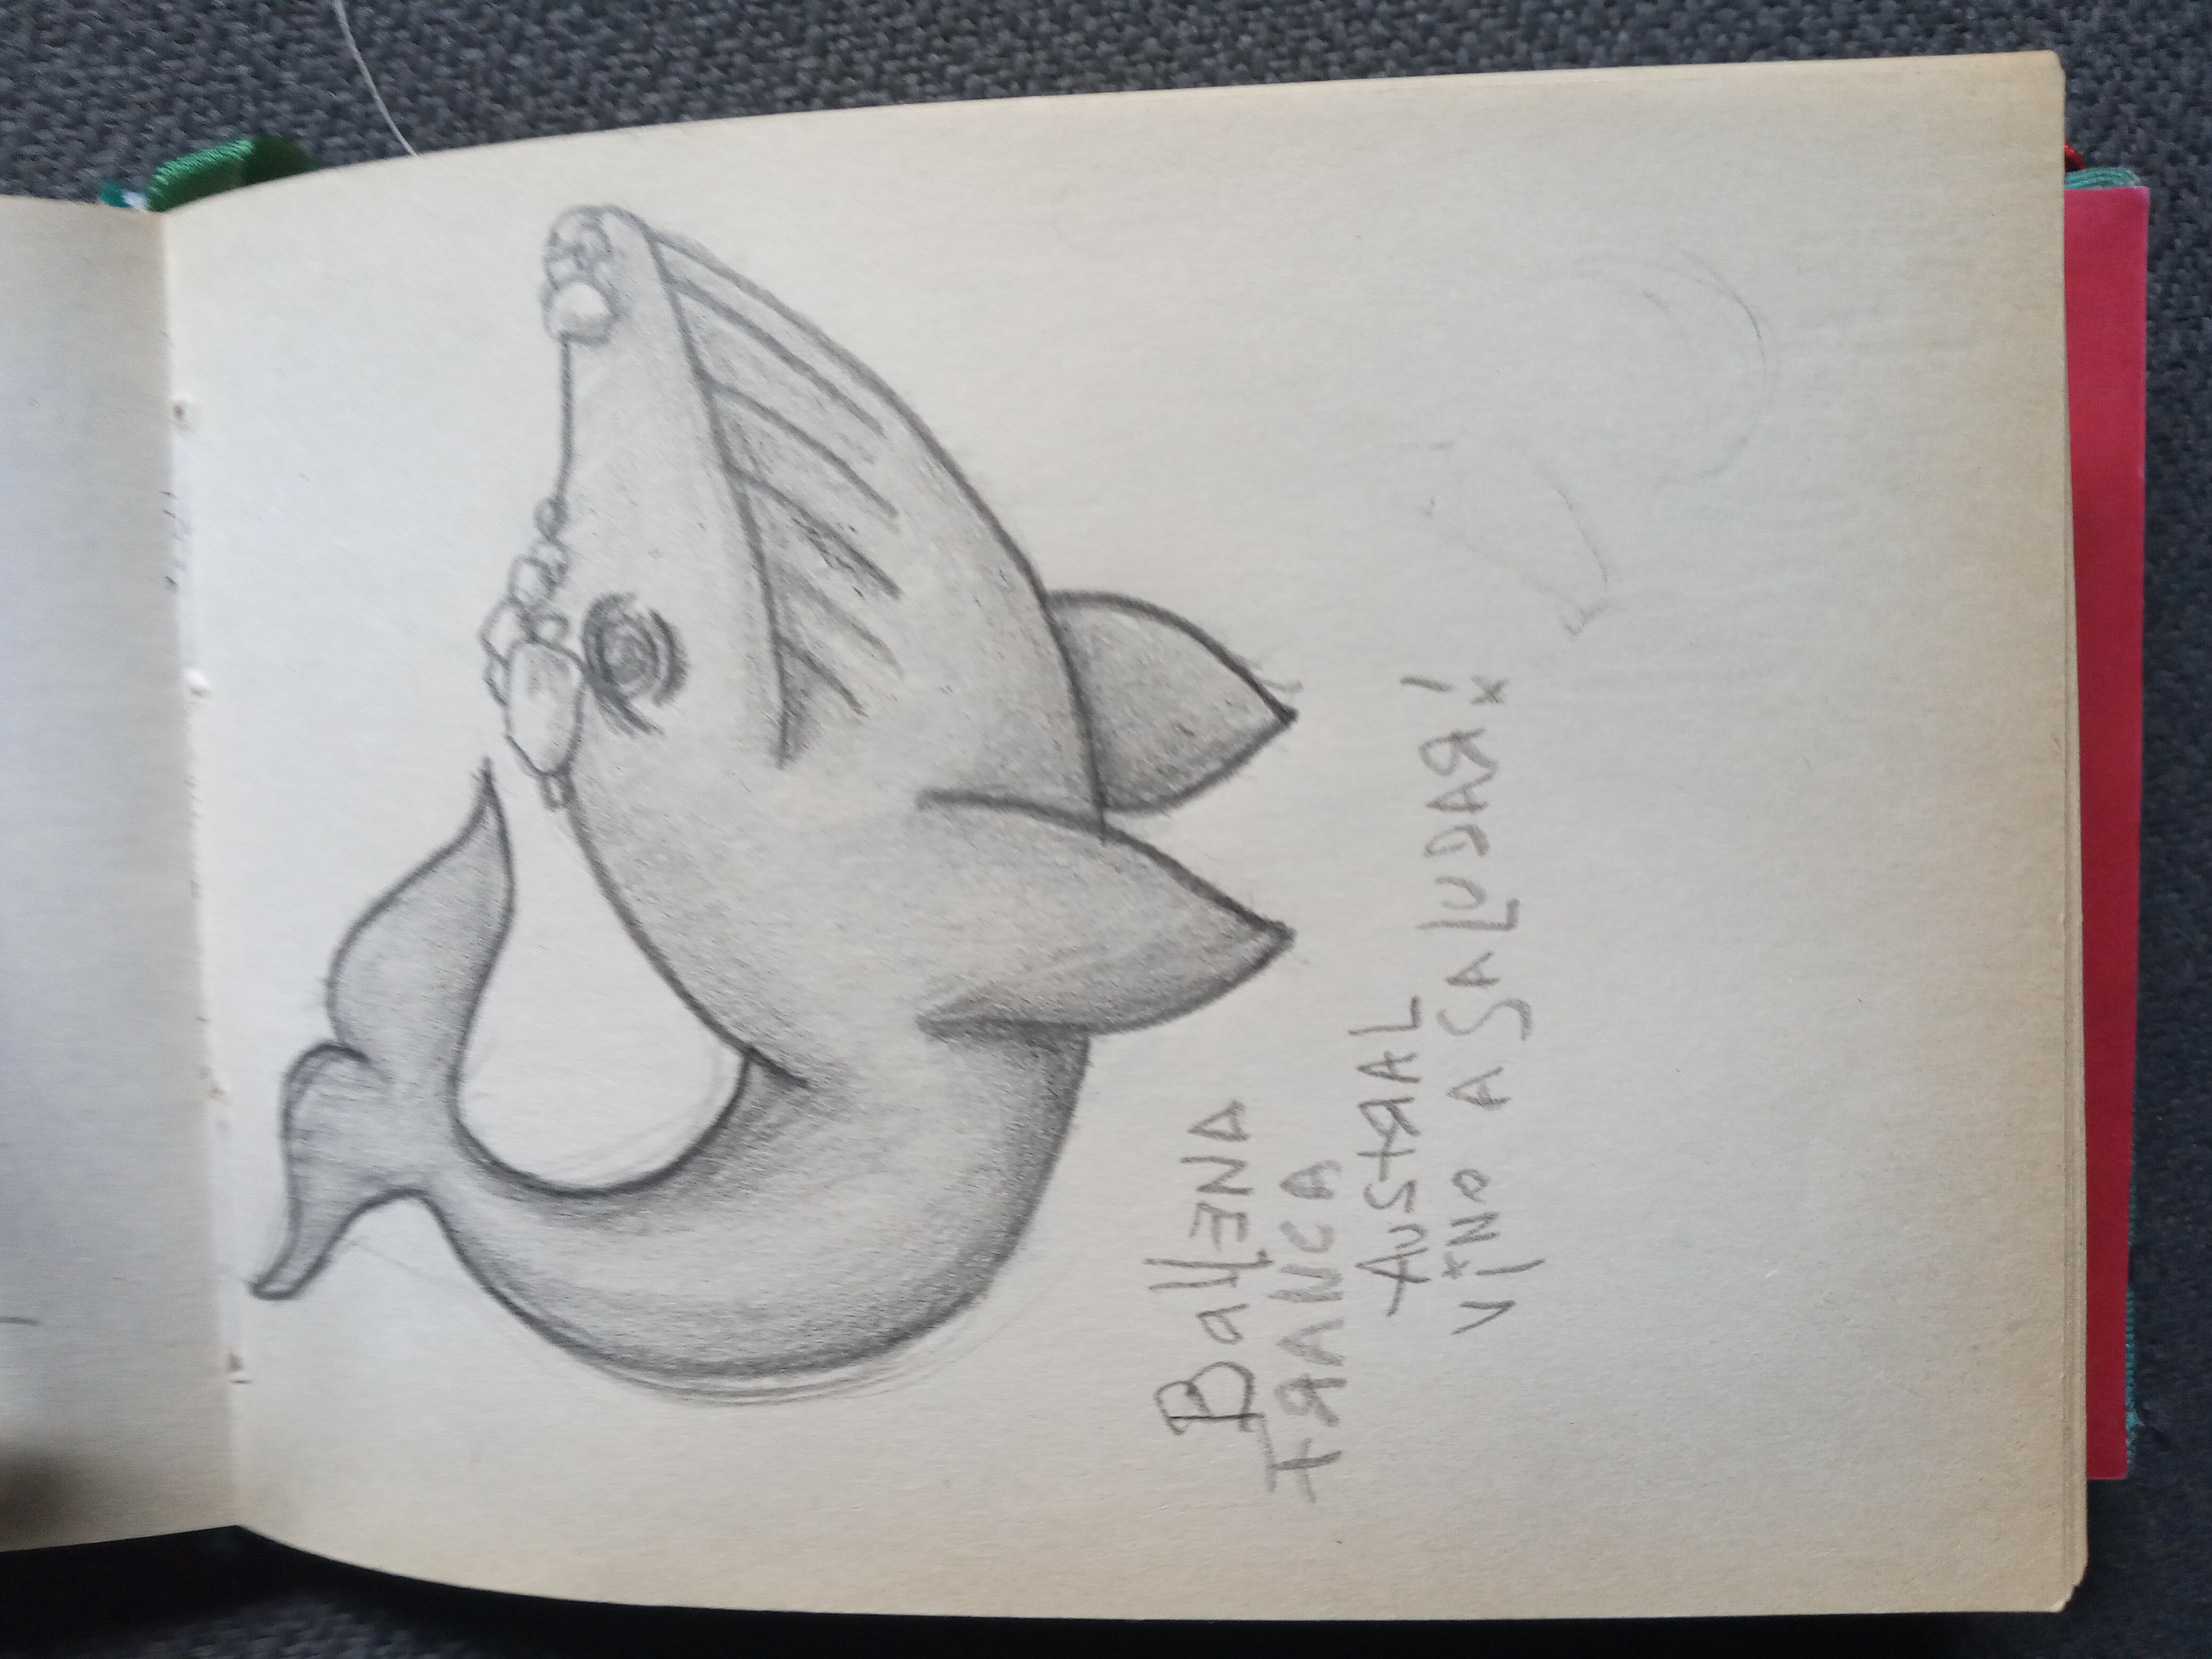 BallENA
FRANCA
AUSTRAL
VINO A SALUDAR!